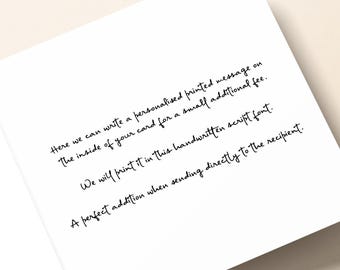 Here we can write a personalised printed message on
the inside of your card for a small additional fee.
We will print it in this handwritten script font.
A perfect addition when sending directly to the recipient.